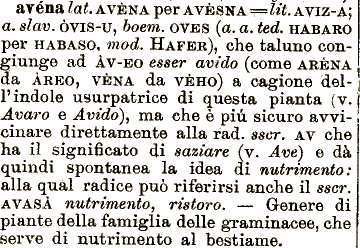 avéna lat. AVÈNA per AVÈSNA = lit. AVIZ-À;
a. slav. ÒVIS-U, boem. OVES (a. a. ted. HABARO
per HABASO, mod. HAFER), che taluno con-
giunge ad ÀV-EO esser avido (come ARÈNA
da ÀREO, VÈNA da VÈHO) a cagione del-
l'indole usurpatrice di questa pianta (v.
Avaro e Avido), ma che è piú sicuro avvi-
cinare direttamente alla rad. sscr. AV che
ha il significato di saziare (v. Ave) e dà
quindi spontanea la idea di nutrimento:
alla qual radice può riferirsi anche il sscr.
AVASÀ nutrimento, ristoro. — Genere di
piante della famiglia delle graminacee, che
serve di nutrimento al bestiame.